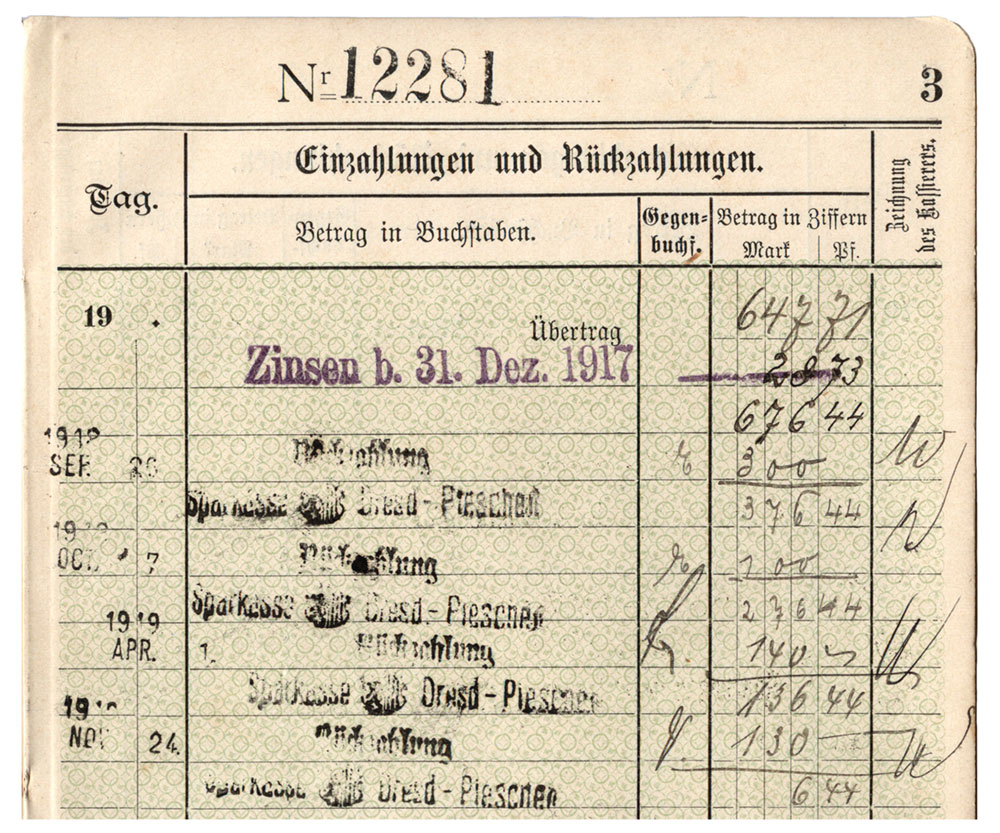 Nr 12281 3
Einzahlungen und Rückzahlungen.
Tag.
Betrag in Buchstaben.
Gegen-
buchf.
Betrag in Ziffern
Mark Pf.
Zeichnung
des Kassierers.
19 .
Übertrag 647 71
Zinsen b. 31. Dez. 1917 28 73
676 44
SEP. 26 Rückzahlung 300
Sparkasse Dresd-Pieschen 376 44
OCT. 7 Rückzahlung 100
Sparkasse Dresd-Pieschen 276 44
1919
APR. 1. Rückzahlung 140
Sparkasse Dresd-Pieschen 136 44
NOV 24. Rückzahlung 130
Sparkasse Dresd-Pieschen 6 44